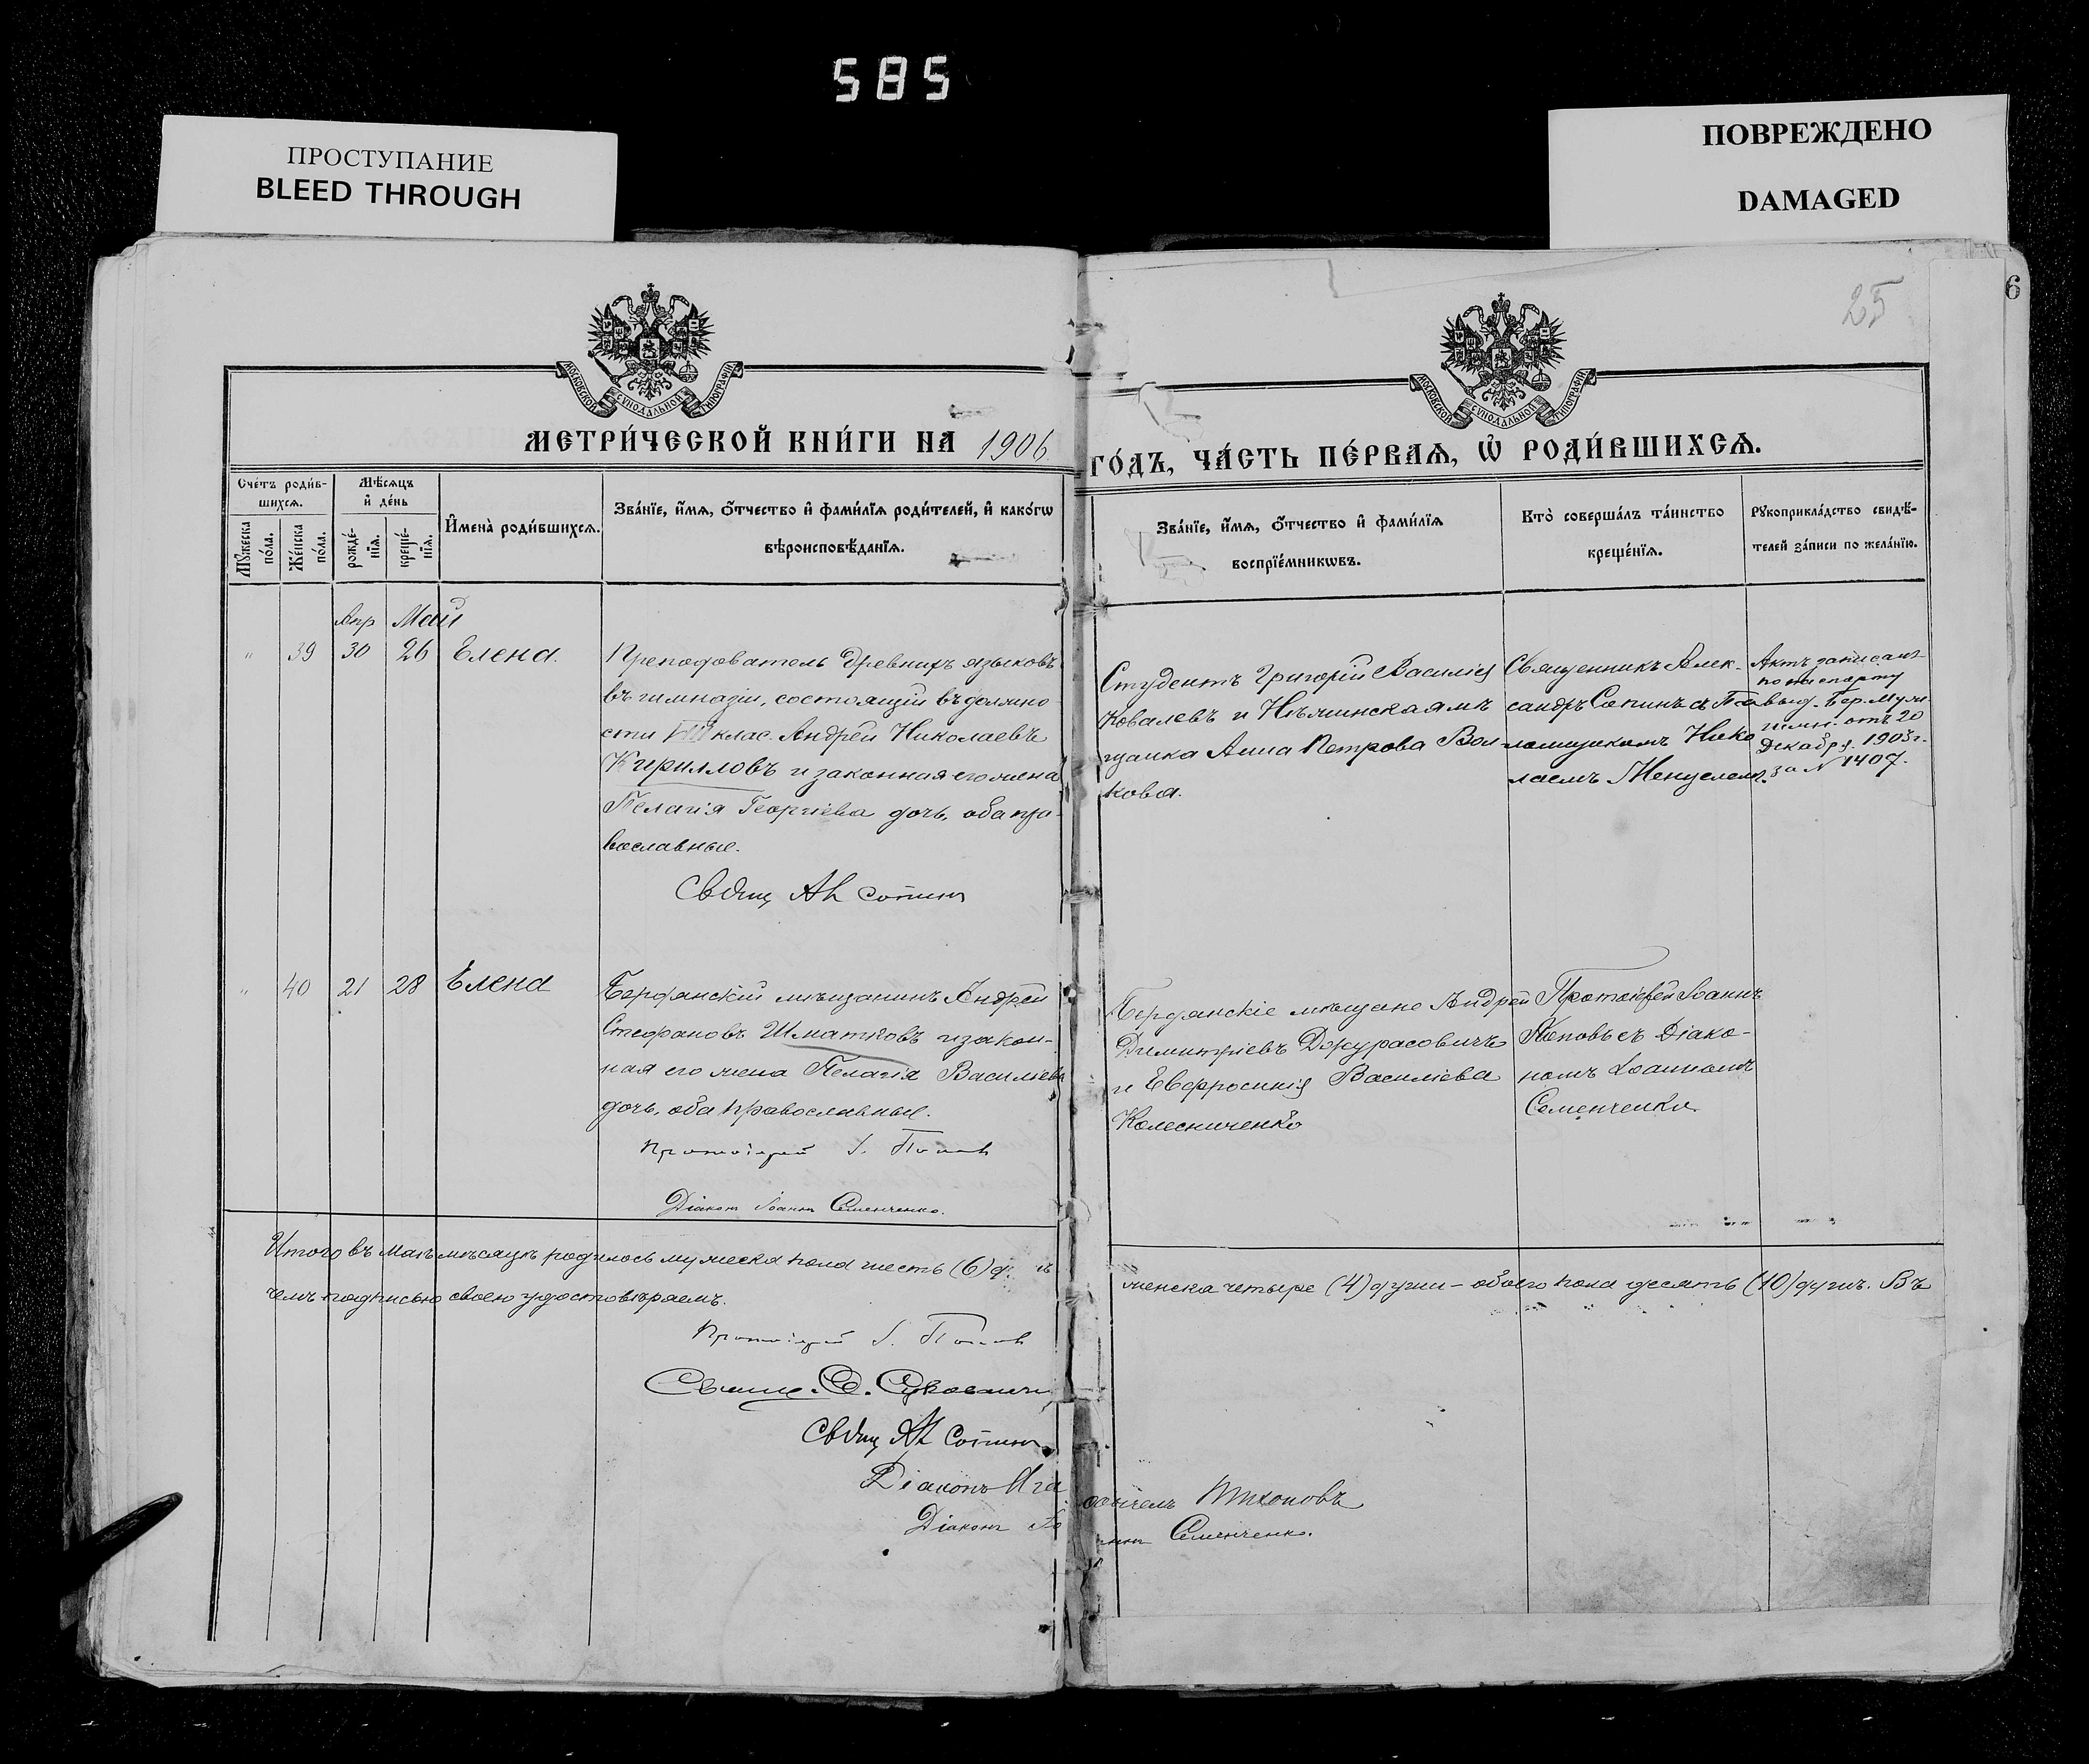 585
ПРОСТУПАНИЕ
BLEED THROUGH
ПОВРЕЖДЕНО
DAMAGED
6
25
МОСКОВСКОЙ СУНОДАЛЬНОЙ ТИПОГРАФІИ
МОСКОВСКОЙ СУНОДАЛЬНОЙ ТИПОГРАФІИ
МЕТРИ́ЧЕСКОЙ КНИ́ГИ НА 1906
ГО́ДЪ, ЧА́СТЬ ПЕ́РВАѦ, Ѡ҆ РОДИ́ВШИХСѦ.
Сче́тъ роди́в-
шихсѧ.
Мꙋжеска по́ла.
Же́нска по́ла.
Мѣ́сѧцъ
и҆ де́нь
рожде́-
нїѧ.
креще́-
нїѧ.
И҆мена̀ роди́вшихсѧ.
Зва́нїе, и҆́мѧ, ѻ҆́тчество и҆ фами́лїѧ роди́телей, и҆ како́гѡ
вѣроисповѣ́данїѧ.
Зва́нїе, и҆́мѧ, ѻ҆́тчество и҆ фами́лїѧ
воспрїе́мникѡвъ.
Кто̀ соверша́лъ та́инство
креще́нїѧ.
Рꙋкоприкла́дство свидѣ́-
телей за́писи по жела́нїю.
Апр Май
" 39 30 26 Елена.
Преподователь древнихъ языковъ
въ гимназіи, состоящій въ должно
сти VIII клас. Андрей Николаевъ
Кирилловъ и законная его жена
Пелагія Георгіева дочь, оба пра-
вославные.
Свящ Ал Сопин
Студентъ Григорій Василіев
Ковалевъ и Нѣжинская мѣ
щанка Анна Петрова Вол-
кова.
Священникъ Алек-
сандръ Сопинъ съ Пса
ломщикомъ Нико
лаемъ Менцелем.
Актъ записанъ
по паспорту
выд. Бер. Муж
гимн. отъ 20
Декабря. 1903 г.
за N 1407.
" 40 21 28 Елена
Бердянскій мѣщанинъ Андрей
Стефановъ Шматковъ и закон-
ная его жена Пелагія Василіева
дочь, оба православные.
Протоіерей І. Попов
Діакон Іоанн Семенченко.
Бердянскіе мѣщане Андрей
Димитріевъ Джурасовичъ
и Евфросинія Василіева
Колесниченко
Протоіерей Іоаннъ
Поповъ съ Діако-
номъ Іоанномъ
Семенченко
Итого въ Маѣ мѣсяцѣ родилось мужеска пола шесть (6) д.
женска четыре (4) души – обоего пола десять (10) душъ. Въ
чемъ подписью своею удостовѣряемъ.
Протоіерей І. Попов
Свящ. С.
Свящ Ал Сопин
Діаконъ Тихоновъ
Діакон Іоанн Семенченко.